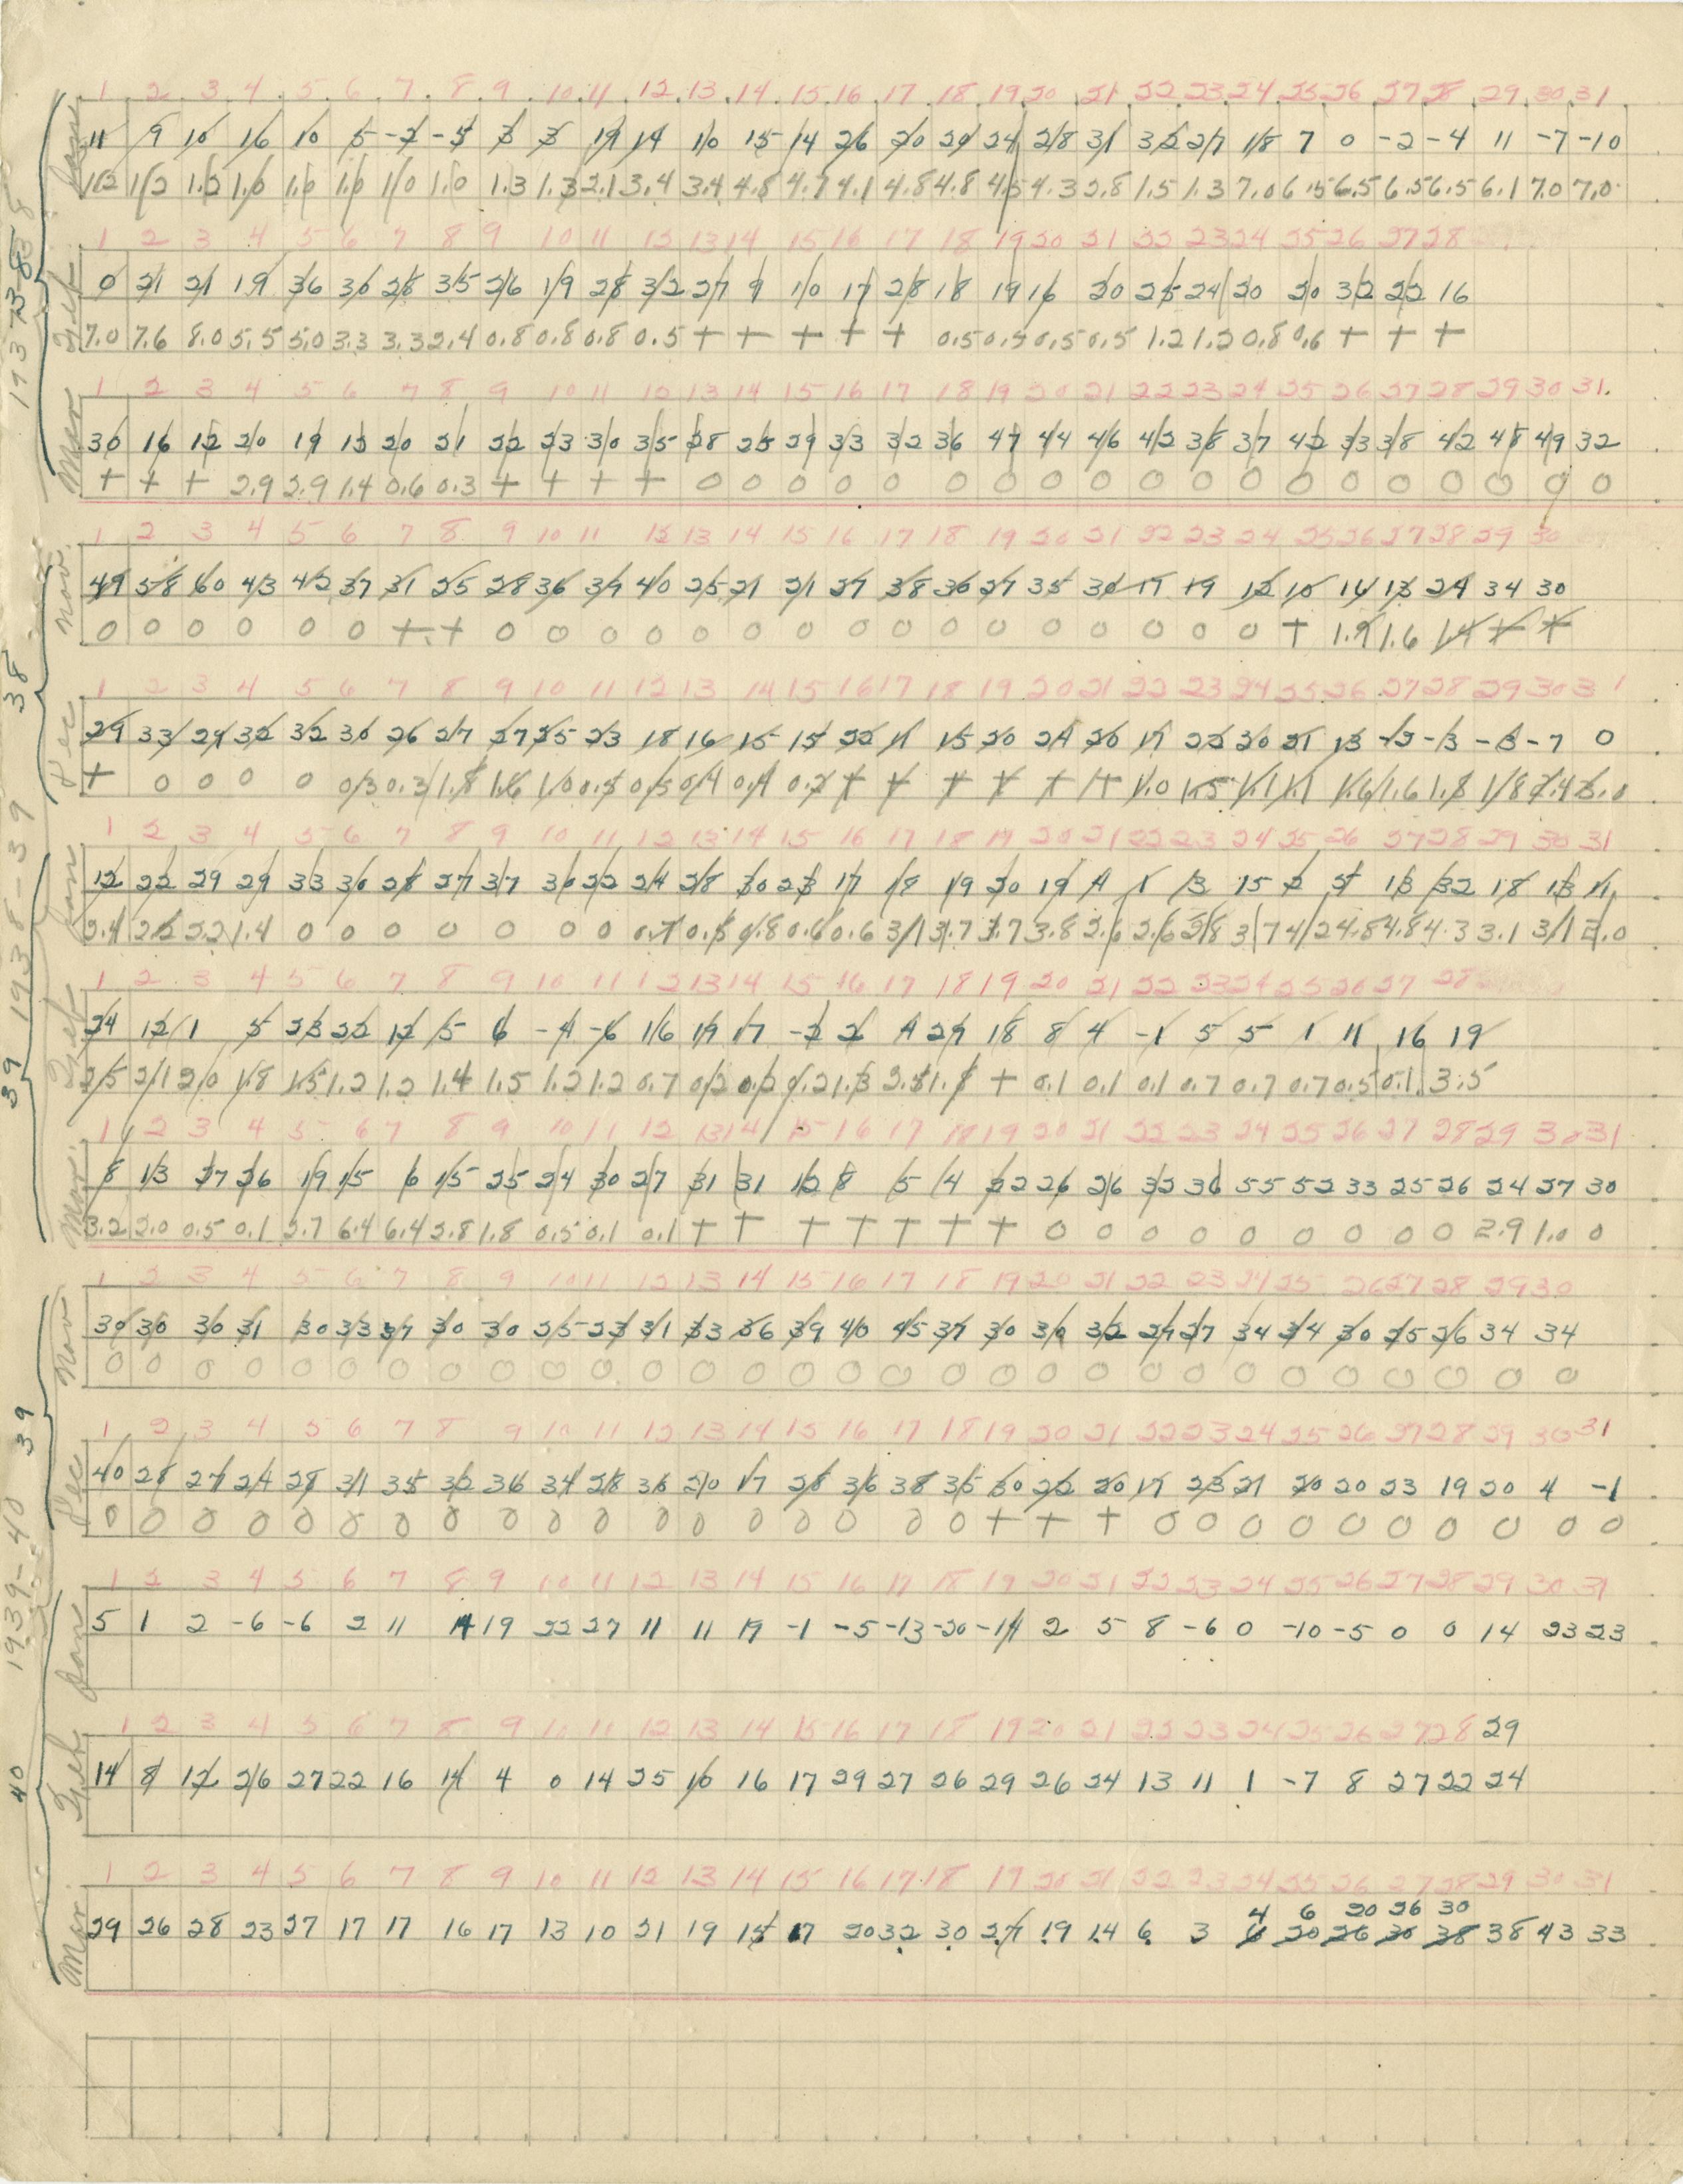 1 2 3 4 5 6 7 8 9 10 11 12 13 14 15 16 17 18 19 20 21 22 23 24 25 26 27 28 29 30 31
Jan 11 9 10 16 10 5 -2 -5 3 3 19 14 10 15 14 26 20 20 24 28 31 32 27 18 7 0 -2 -4 11 -7 -10
1.2 1.2 1.2 1.0 1.0 1.0 1.0 1.0 1.3 1.3 2.1 3.4 3.4 4.8 4.7 4.1 4.8 4.8 4.5 4.3 2.8 1.5 1.3 7.0 6.5 6.5 6.5 6.5 6.1 7.0 7.0
1937-38
1 2 3 4 5 6 7 8 9 10 11 12 13 14 15 16 17 18 19 20 21 22 23 24 25 26 27 28
Feb 0 21 21 19 36 30 28 35 26 19 28 32 27 9 10 17 28 18 19 16 20 25 24 20 20 32 22 16
7.0 7.6 8.0 5.5 5.0 3.3 3.3 2.4 0.8 0.8 0.8 0.5 + + + + + 0.5 0.5 0.5 0.5 1.2 1.2 0.8 0.6 + + +
1 2 3 4 5 6 7 8 9 10 11 12 13 14 15 16 17 18 19 20 21 22 23 24 25 26 27 28 29 30 31.
Mar 30 16 12 20 19 13 20 21 22 23 30 35 28 25 29 33 32 36 47 44 46 42 38 37 42 33 38 42 48 49 32
+ + + 2.9 2.9 1.4 0.6 0.3 + + + + 0 0 0 0 0 0 0 0 0 0 0 0 0 0 0 0 0 0 0
1 2 3 4 5 6 7 8 9 10 11 12 13 14 15 16 17 18 19 20 21 22 23 24 25 26 27 28 29 30
Nov. 49 58 60 43 42 37 31 25 28 36 37 40 25 21 21 27 38 30 27 35 30 17 19 12 10 14 13 24 34 30
0 0 0 0 0 0 + + 0 0 0 0 0 0 0 0 0 0 0 0 0 0 0 0 + 1.9 1.6 1.4 + +
38
1 2 3 4 5 6 7 8 9 10 11 12 13 14 15 16 17 18 19 20 21 22 23 24 25 26 27 28 29 30 31
Dec 29 33 29 32 32 30 26 27 27 25 23 18 16 15 15 22 11 15 20 24 20 17 22 20 21 13 -2 -3 -3 -7 0
+ 0 0 0 0 0.3 0.3 1.8 1.6 1.0 0.5 0.5 0.4 0.4 0.2 + + + + + + 1.0 1.5 1.1 1.1 1.6 1.6 1.8 1.8 2.4 3.0
1938-39
1 2 3 4 5 6 7 8 9 10 11 12 13 14 15 16 17 18 19 20 21 22 23 24 25 26 27 28 29 30 31
Jan 12 22 29 29 33 30 28 27 37 30 22 24 28 30 23 17 18 19 20 19 4 1 13 15 2 5 13 32 18 13 11
2.4 2.2 2.2 1.4 0 0 0 0 0 0 0 0.7 0.5 0.8 0.6 0.6 3.1 3.7 3.7 3.8 2.6 2.6 2.8 3.7 4.2 4.8 4.8 4.3 3.1 3.1 2.0
39
1 2 3 4 5 6 7 8 9 10 11 12 13 14 15 16 17 18 19 20 21 22 23 24 25 26 27 28
Feb 24 12 1 5 23 22 12 5 6 -4 -6 16 19 17 -2 2 4 27 18 8 4 -1 5 5 1 11 16 19
2.5 2.1 2.0 1.8 1.5 1.2 1.2 1.4 1.5 1.2 1.2 0.7 0.2 0.2 0.2 1.3 2.3 1.8 + 0.1 0.1 0.1 0.7 0.7 0.7 0.5 0.1 3.5
1 2 3 4 5 6 7 8 9 10 11 12 13 14 15 16 17 18 19 20 21 22 23 24 25 26 27 28 29 30 31
Mar. 8 13 27 26 19 15 6 15 25 24 30 27 31 31 12 8 5 4 22 26 26 32 36 55 52 33 25 26 24 27 30
3.2 2.0 0.5 0.1 2.7 6.4 6.4 2.8 1.8 0.5 0.1 0.1 + + + + + + + 0 0 0 0 0 0 0 0 0 2.9 1.0 0
1 2 3 4 5 6 7 8 9 10 11 12 13 14 15 16 17 18 19 20 21 22 23 24 25 26 27 28 29 30
Nov 30 30 30 31 30 33 37 30 30 25 23 31 33 36 39 40 45 37 30 30 32 27 27 34 34 30 25 26 34 34
0 0 0 0 0 0 0 0 0 0 0 0 0 0 0 0 0 0 0 0 0 0 0 0 0 0 0 0 0 0
39
1 2 3 4 5 6 7 8 9 10 11 12 13 14 15 16 17 18 19 20 21 22 23 24 25 26 27 28 29 30 31
Dec 40 28 27 24 28 31 35 32 36 34 28 36 20 17 28 36 38 35 30 22 20 17 23 21 20 20 23 19 20 4 -1
0 0 0 0 0 0 0 0 0 0 0 0 0 0 0 0 0 0 + + + 0 0 0 0 0 0 0 0 0 0
1939-40
1 2 3 4 5 6 7 8 9 10 11 12 13 14 15 16 17 18 19 20 21 22 23 24 25 26 27 28 29 30 31
Jan 5 1 2 -6 -6 2 11 14 19 22 27 11 11 19 -1 -5 -13 -20 -14 2 5 8 -6 0 -10 -5 0 0 14 23 23
1 2 3 4 5 6 7 8 9 10 11 12 13 14 15 16 17 18 19 20 21 22 23 24 25 26 27 28 29
Feb 14 8 12 26 27 22 16 14 4 0 14 25 10 16 17 29 27 26 29 26 24 13 11 1 -7 8 27 22 24
40
1 2 3 4 5 6 7 8 9 10 11 12 13 14 15 16 17 18 19 20 21 22 23 24 25 26 27 28 29 30 31
4 6 20 26 30
Mar. 29 26 28 23 27 17 17 16 17 13 10 21 19 15 17 20 32 30 27 19 14 6 3 6 20 26 30 38 38 43 33